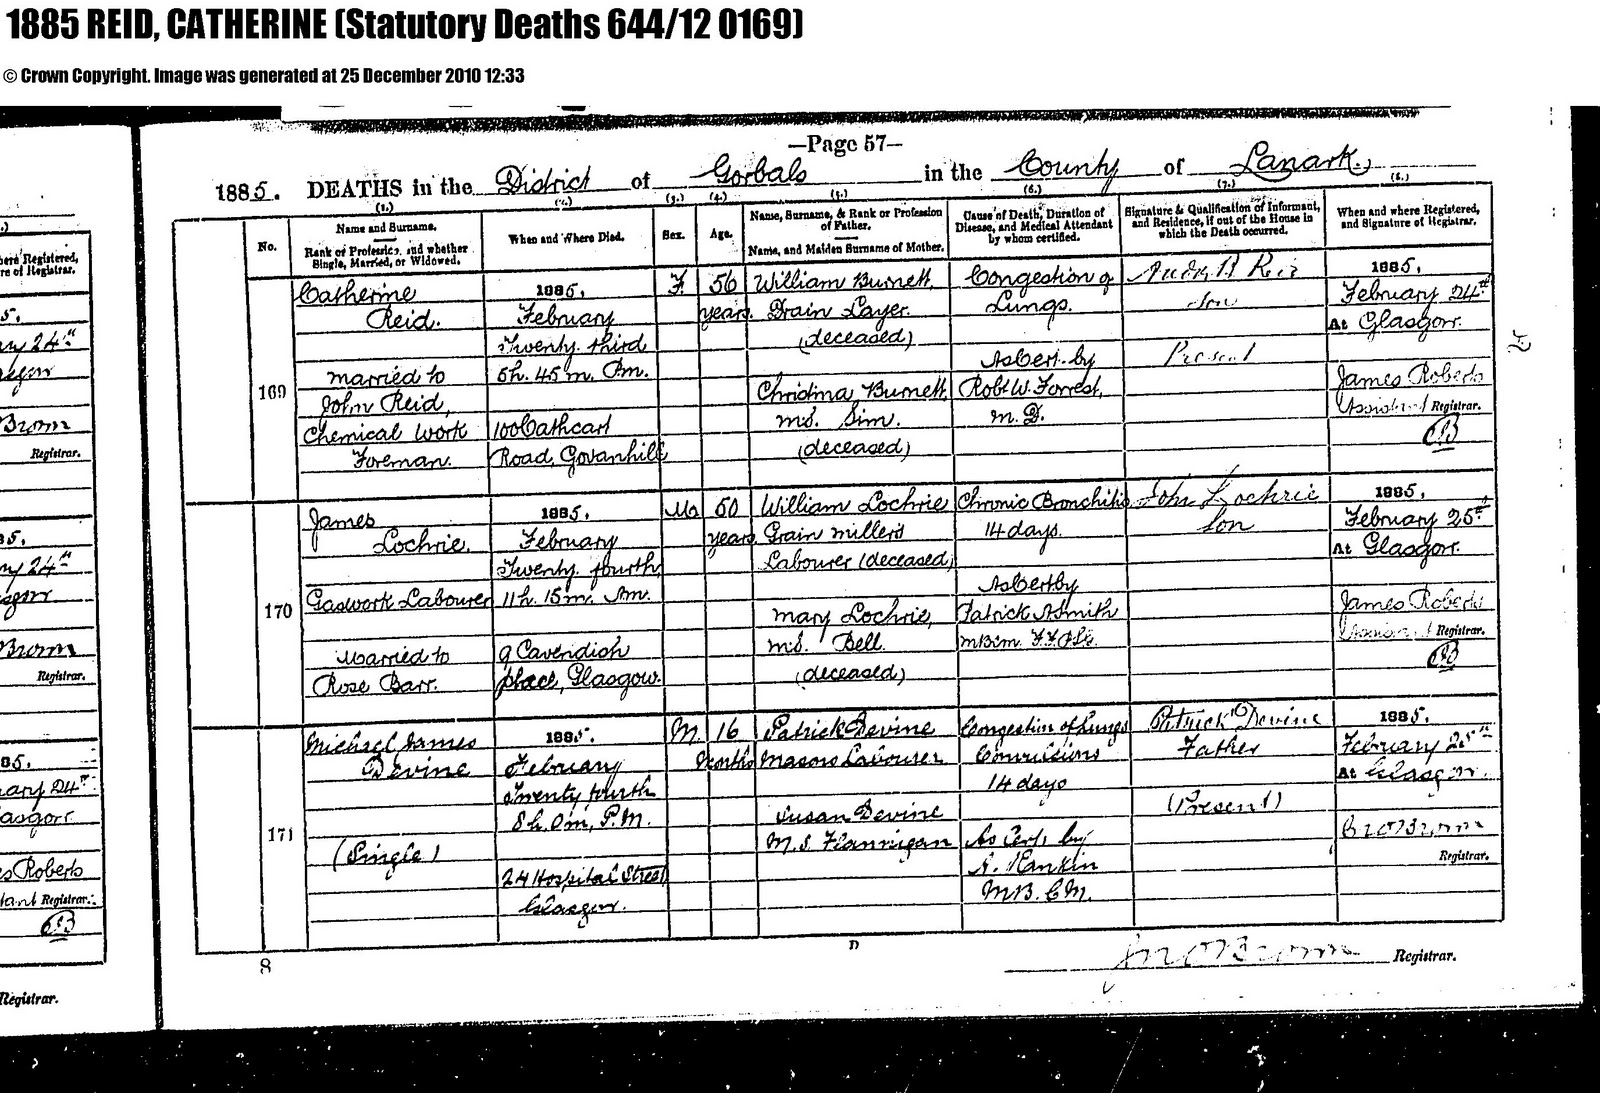 1885 REID, CATHERINE (Statutory Deaths 644/12 0169)
© Crown Copyright. Image was generated at 25 December 2010 12:33
—Page 57—
1885. DEATHS in the District of Gorbals in the County of Lanark.
(1.) (2.) (3.) (4.) (5.) (6.) (7.) (8.)
No.
Name and Surname.
Rank or Profession, and whether
Single, Married, or Widowed.
When and Where Died.
Sex.
Age.
Name, Surname, & Rank or Profession
of Father.
Name, and Maiden Surname of Mother.
Cause of Death, Duration of
Disease, and Medical Attendant
by whom certified.
Signature & Qualification of Informant,
and Residence, if out of the House in
which the Death occurred.
When and where Registered,
and Signature of Registrar.
169
Catherine
Reid.
married to
John Reid,
Chemical Work
Foreman.
1885.
February
Twenty third
5h. 45m. Pm.
100 Cathcart
Road, Govanhill
F.
56
years.
William Burnett,
Drain Layer.
(deceased)
Christina Burnett,
m.S. Sim.
(deceased)
Congestion of
Lungs.
As Cert. by
Robt. W. Forrest,
M.D.
Reid
Son
Present
1885.
February 24th
At Glasgow.
James Roberts
Assistant Registrar.
170
James
Lochrie.
Gaswork Labourer
Married to
Rose Barr.
1885.
February
Twenty fourth
11h. 15m. Am.
9 Cavendish
place, Glasgow.
M.
50
years.
William Lochrie
Grain millers
Labourer (deceased)
Mary Lochrie,
m.S. Bell.
(deceased)
Chronic Bronchitis
14 days.
As Cert by
Patrick A Smith
John Lochrie
Son
1885.
February 25th
At Glasgow.
James Roberts
Assistant Registrar.
171
Michael James
Devine
(Single)
1885.
February
Twenty fourth
8h. 0m, P.M.
24 Hospital Street
Glasgow.
M.
16
Months
Patrick Devine
Masons Labourer
Susan Devine
M.S. Flannigan
Congestion of Lungs
Convulsions
14 days
As Cert. by
A. Rankin
M.B. C.M.
Patrick Devine
Father
(Present)
1885.
February 25th
At Glasgow.
Jno Brown
Registrar.
8
D
Jno Brown Registrar.